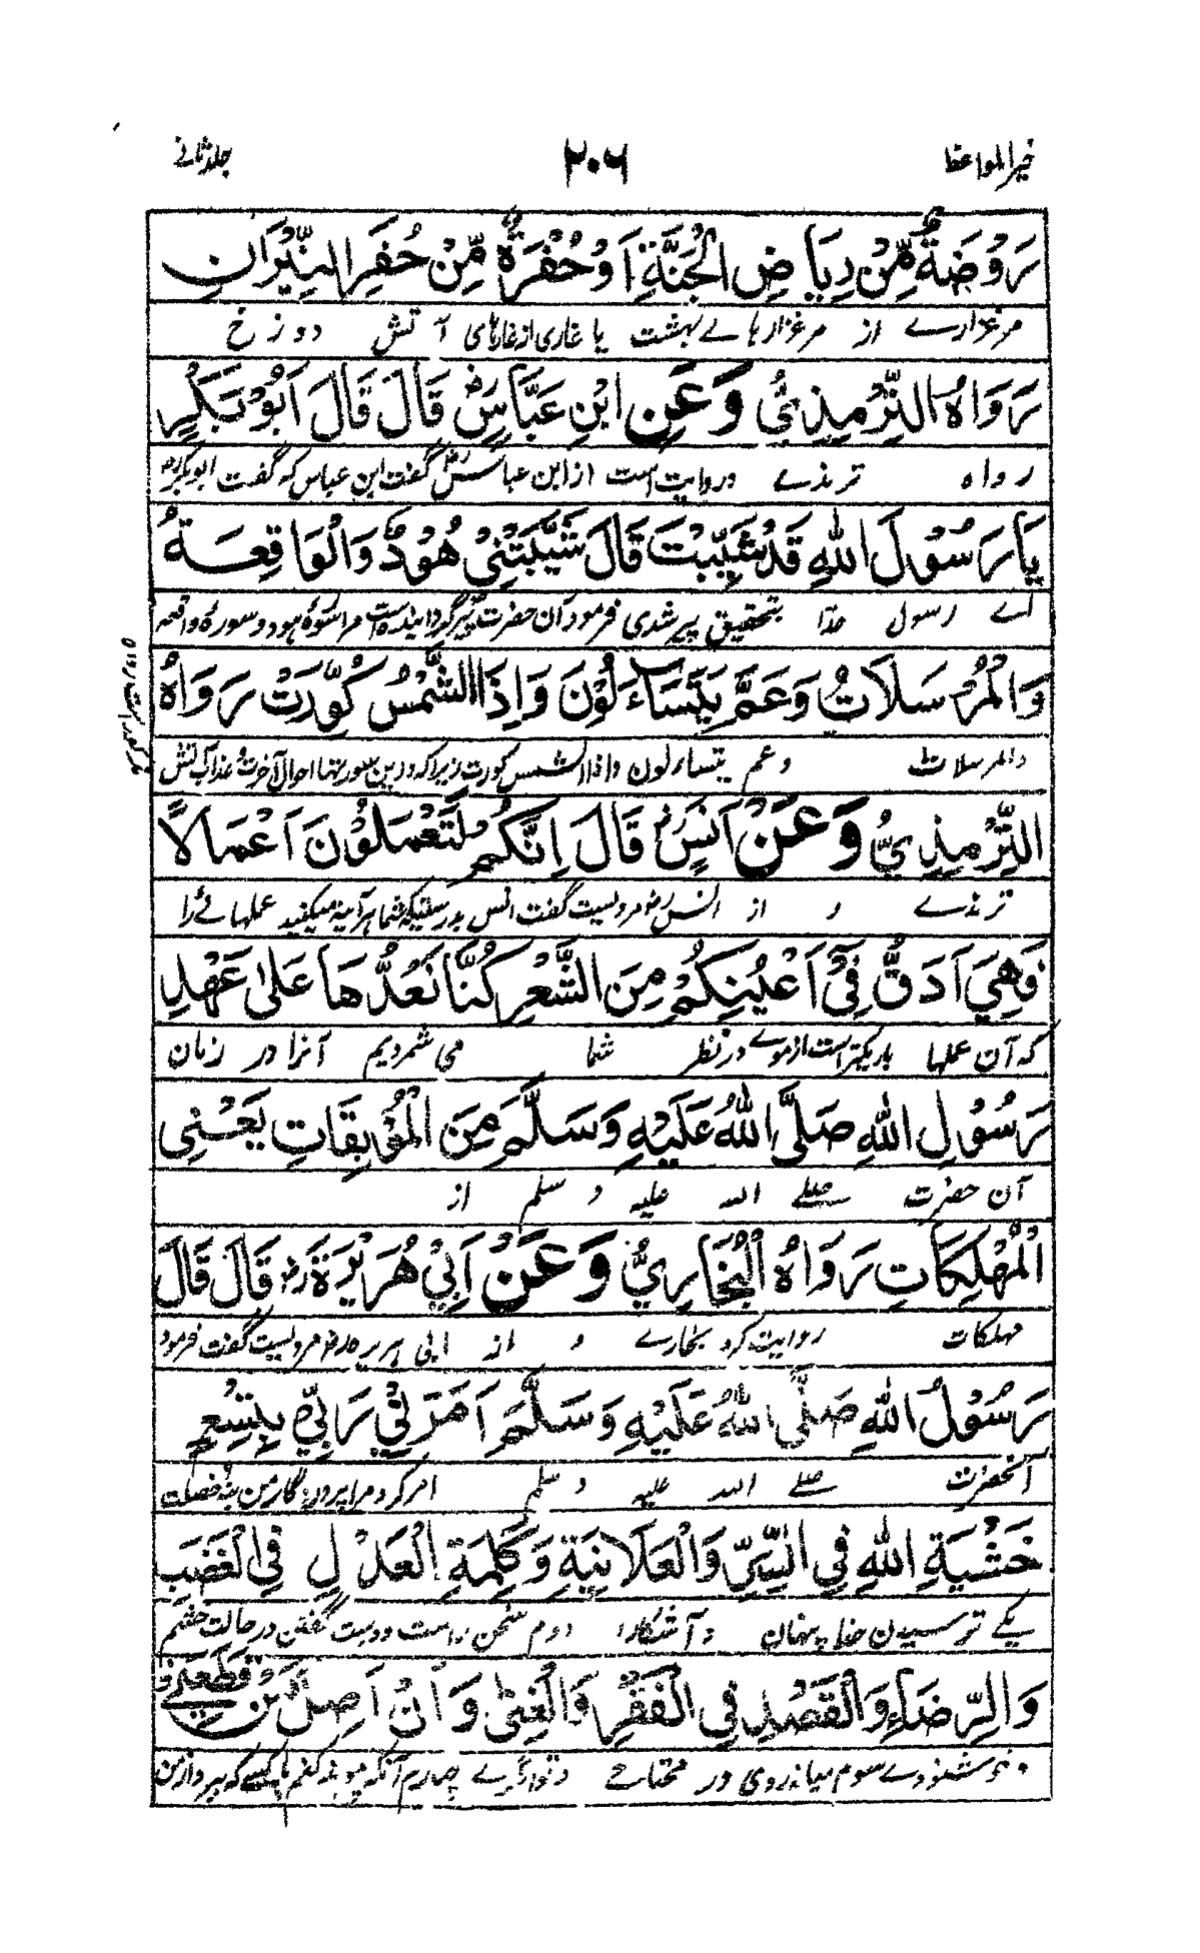 خیر المواعظ ۲۰۶ جلد ثانی
رَوْضَةٌ مِّنْ رِيَاضِ الْجَنَّةِ اَوْ حُفْرَةٌ مِّنْ حُفَرِ النِّيْرَانِ
مرغزارے از مرغزارہائے بہشت یا غاری از غارہای آتش دوزخ
رَوَاهُ التِّرْمِذِيُّ وَعَنِ ابْنِ عَبَّاسٍ رض قَالَ قَالَ اَبُوْ بَكْرٍ
رواہ ترمذے و روایت است از ابن عباس رض گفت ابن عباس کہ گفت ابوبکر
يَا رَسُوْلَ اللهِ قَدْ شَيَّبْتَ قَالَ شَيَّبَتْنِيْ هُوْدٌ وَالْوَاقِعَةُ
اے رسول خدا بتحقیق پیر شدی فرمود آن حضرت پیر گردانیدہ است مرا سورۂ ہود و سورۂ واقعہ
وَالْمُرْسَلَاتُ وَعَمَّ يَتَسَاءَلُوْنَ وَاِذَا الشَّمْسُ كُوِّرَتْ رَوَاهُ
والمرسلات و عم یتساءلون و اذا الشمس کورت زیرا کہ درین سورتہا احوال آخرت و عذاب آتش
التِّرْمِذِيُّ وَعَنْ اَنَسٍ رض قَالَ اِنَّكُمْ لَتَعْمَلُوْنَ اَعْمَالًا
ترمذے و از انس رض مرویست گفت انس بدرستیکہ شما ہر آینہ میکنید عملہائے را
فَهِيَ اَدَقُّ فِيْ اَعْيُنِكُمْ مِنَ الشَّعْرِ كُنَّا نَعُدُّهَا عَلٰى عَهْدِ
کہ آن عملہا باریکتر است از موے در نظر شما می شمردیم آنرا در زمان
رَسُوْلِ اللهِ صَلَّى اللهُ عَلَيْهِ وَسَلَّمَ مِنَ الْمُوْبِقَاتِ يَعْنِى
آن حضرت صلے اللہ علیہ و سلم از
الْمُهْلِكَاتِ رَوَاهُ الْبُخَارِيُّ وَعَنْ اَبِيْ هُرَيْرَةَ رض قَالَ قَالَ
مہلکات روایت کرد بخارے و از ابی ہریرہ رض مرویست گفت فرمود
رَسُوْلُ اللهِ صَلَّى اللهُ عَلَيْهِ وَسَلَّمَ اَمَرَنِيْ رَبِّيْ بِتِسْعٍ
آنحضرت صلے اللہ علیہ و سلم امر کرد مرا پروردگار من بنہ خصلت
خَشْيَةِ اللهِ فِي السِّرِّ وَالْعَلَانِيَةِ وَكَلِمَةِ الْعَدْلِ فِي الْغَضَبِ
یکے ترسیدن خدا پنہان و آشکارا دوم سخن راست و درست گفتن در حالت خشم
وَالرِّضَاءِ وَالْقَصْدِ فِي الْفَقْرِ وَالْغِنٰى وَاَنْ اَصِلَ مَنْ قَطَعَنِيْ
و خوشنودے سوم میانہ روی در محتاجے و توانگرے چہارم آنکہ پیوند کنم با کسیکہ ببرد از من